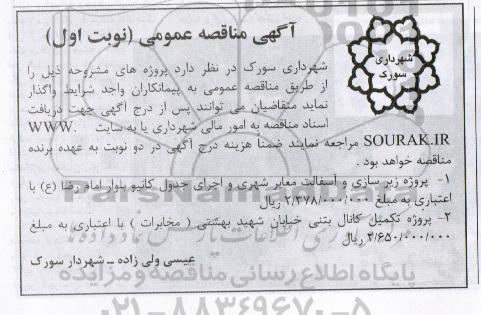 آگهی مناقصه عمومی (نوبت اول)
شهرداری
سورک
شهرداری سورک در نظر دارد پروژه های مشروحه ذیل را
از طریق مناقصه عمومی به پیمانکاران واجد شرایط واگذار
نماید متقاضیان می توانند پس از درج آگهی جهت دریافت
اسناد مناقصه به امور مالی شهرداری یا به سایت WWW.
SOURAK.IR مراجعه نمایند ضمناً هزینه درج آگهی در دو نوبت به عهده برنده
مناقصه خواهد بود .
۱- پروژه زیر سازی و آسفالت معابر شهری و اجرای جدول کانیو بلوار امام رضا (ع) با
اعتباری به مبلغ ۲/۳۷۸/۰۰۰/۰۰۰ ریال
۲- پروژه تکمیل کانال بتنی خیابان شهید بهشتی ( مخابرات ) با اعتباری به مبلغ
۲/۶۵۰/۰۰۰/۰۰۰ ریال
عیسی ولی زاده - شهردار سورک
پایگاه اطلاع رسانی مناقصه و مزایده
۰۲۱-۸۸۳۴۹۶۷۰-۵